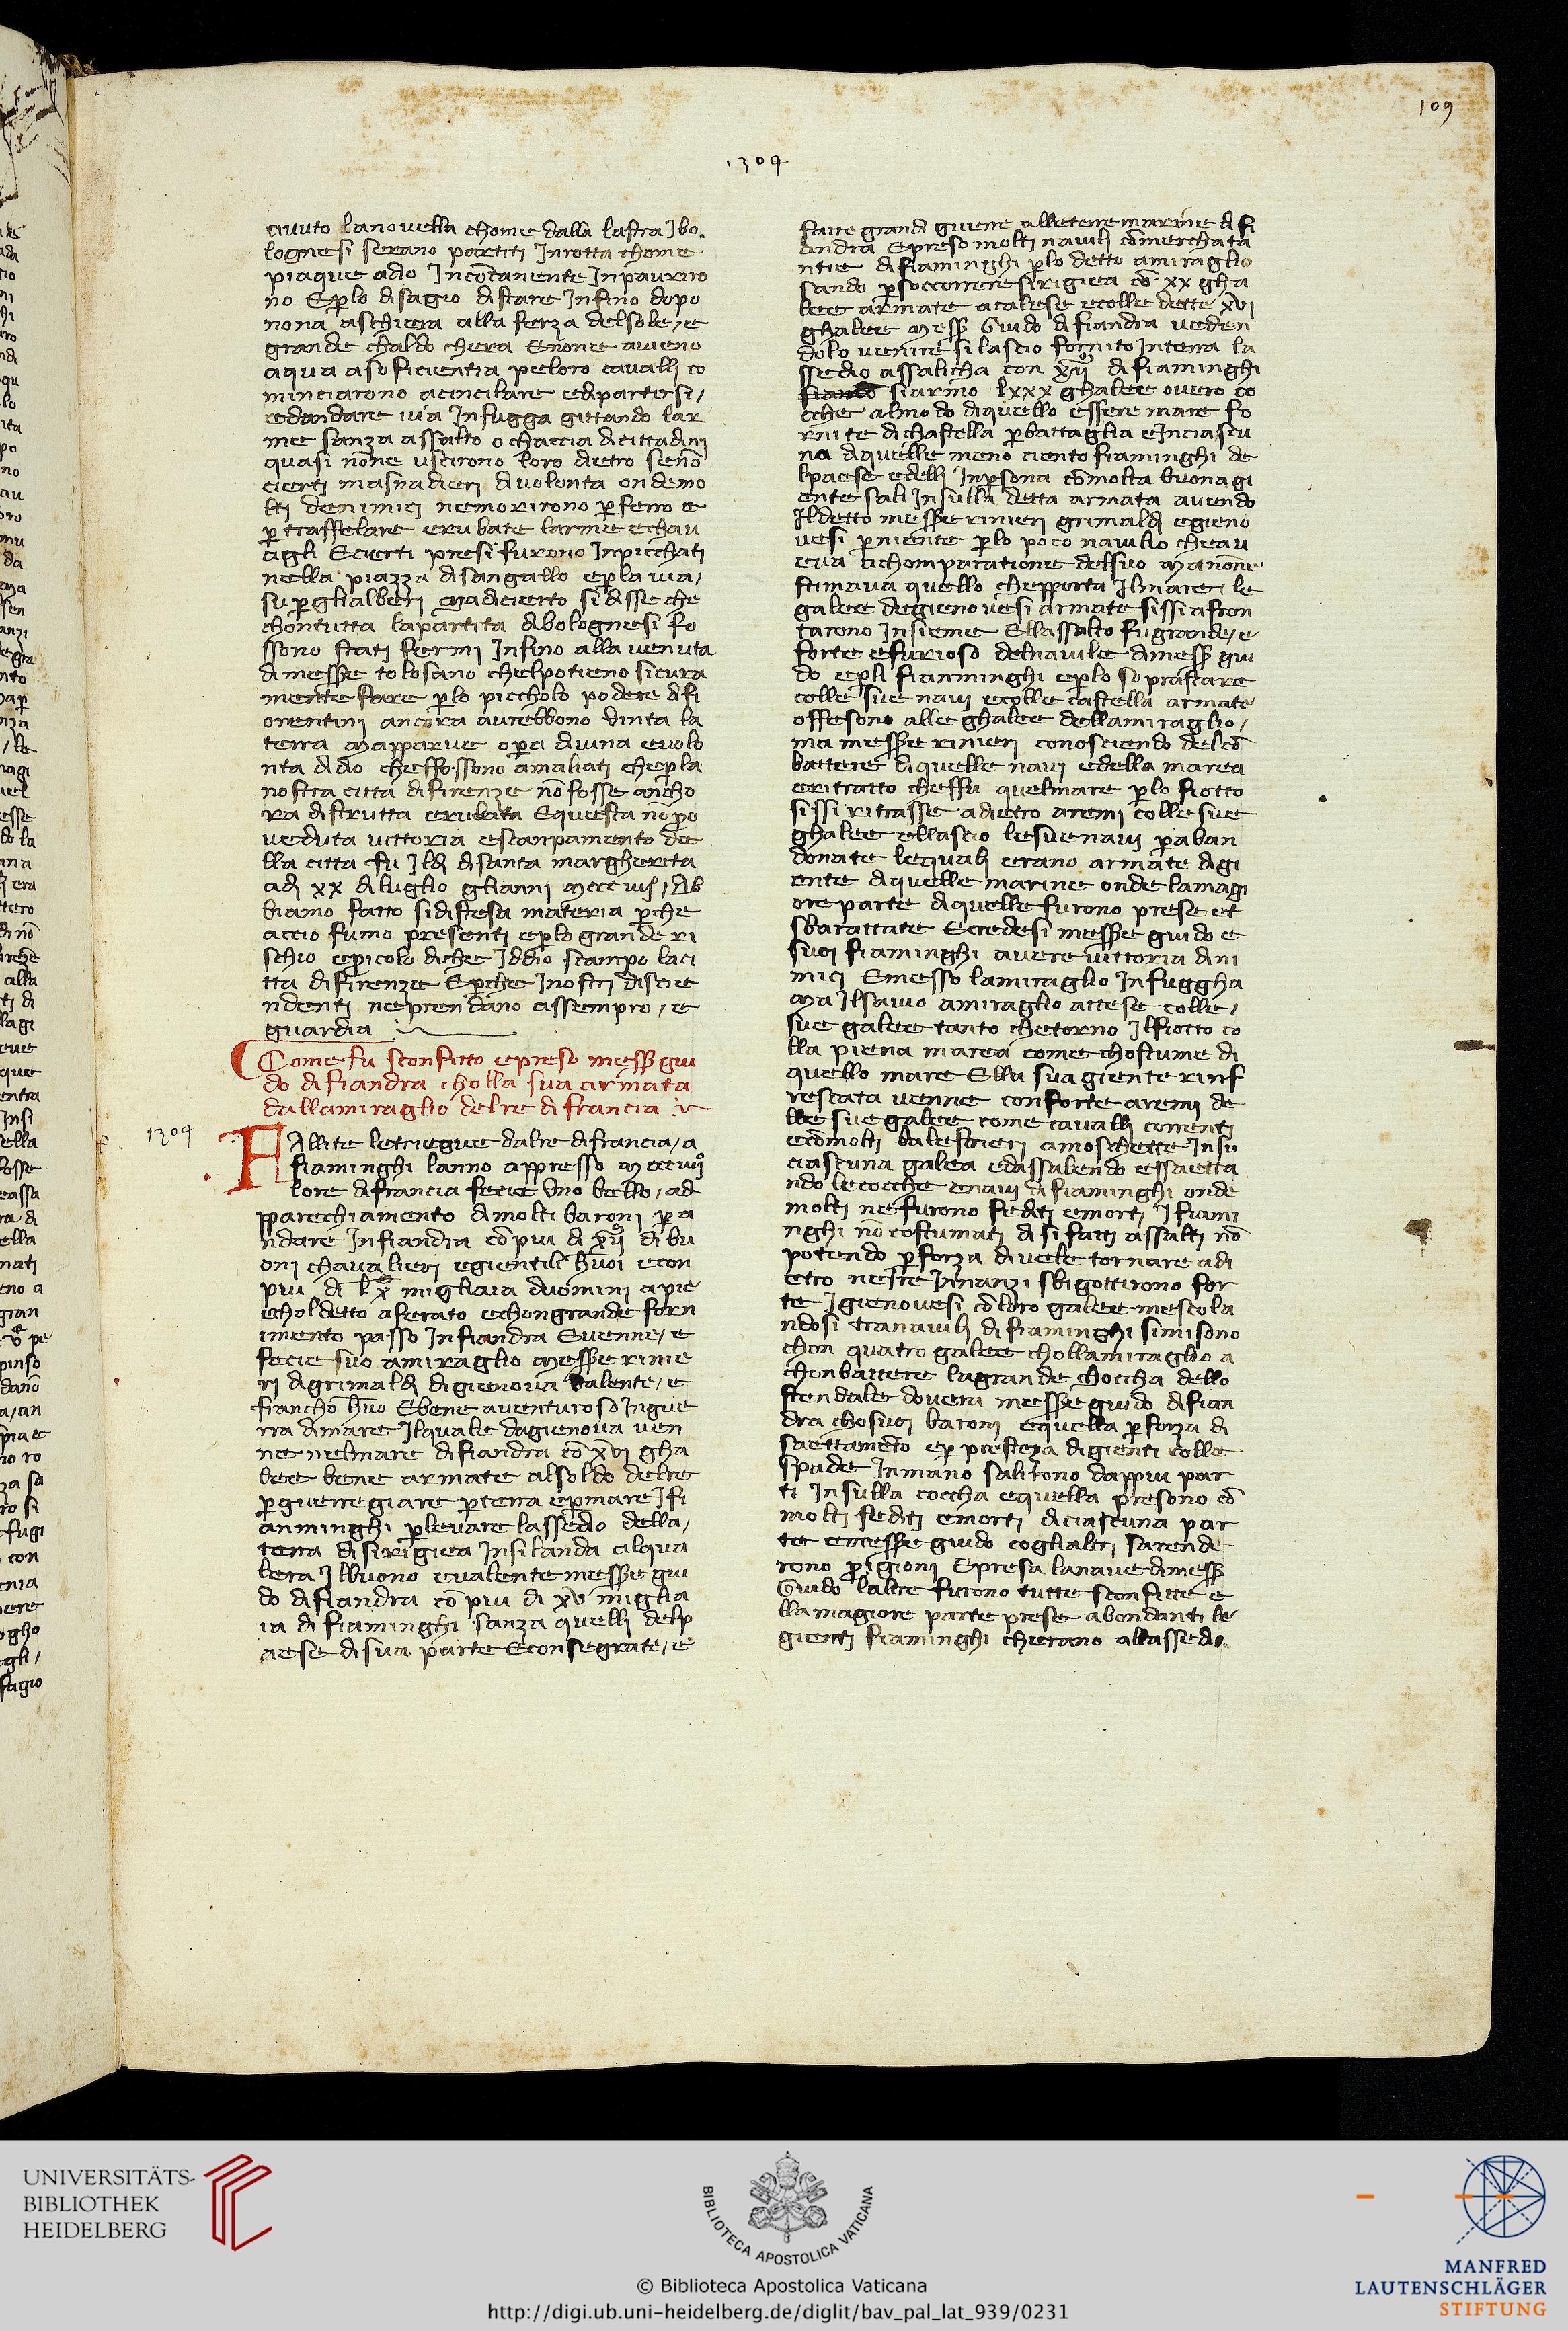 109
1304
avuto lanovella chome dalla lastra Jbo.
lognesi serano partiti Inrotta chome
piaque adio Incōtanente Inpauriro
no Ep̱lo disagio distare Infino dopo
nona aschiera alla ferza delsole / e
grande chaldo chera Enone aveno
aqua asoficientia peloro cavalli co
minciarono acincilare edpartirsi /
edandare via Infugga gittando lar
me sanza assalto o chaccia dicittadini
quasi nōne uscirono loro dietro senō
cierti masnadieri divolonta ondemo
lti denimici nemorirono p̱ ferro e
p̱ traffelare erubate larme echav
agli Ecierti presi furono Inpicchati
nella piazza disangallo ep̱ la via /
sup̱ glialberi Madicierto sidisse che
chontutta lapartita dibolognesi fo
ssono stati fermi Infino alla venuta
dimess̱e tolosano chelpotieno sicura
mente fare p̱lo piccholo podere difi
orentini ancora avrebbono vinta la
terra Mapparve opera divina evolo
nta didio cheffossono amaliati chep̱la
nostra citta difirenze nō fosse ancho
ra distrutta erubata Equesta nō pro
veduta vittoria escanpamento de
lla citta fu Ildi disanta margherita
adi xx diluglio glianni Mccciiii° / Ab
biamo fatto sidistesa materia p̱che
accio fumo presenti ep̱lo grande ri
schio ep̱icolo diche Iddio scampo laci
tta difirenze Ep̱che Inostri discie
ndenti neprendano assempro / e
guardia
Come fu sconfitto epreso mess̱ gui
do difiandra cholla sua armata
dallamiraglio delre difrancia
1304
FAllite letriegue dalre difrancia / a
fiaminghi lanno appresso Mccciiii°
lore difrancia fecie Uno bello / ad
pparechiamento dimolti baroni p̱ a
ndare Infiandra cō piu di xii^m di bu
oni chavalieri egientili huoi econ
piu di lx^m migliaia duomini apie
echoldetto aferato echongrande forn
imento passo Infiandra Evenne / e
fecie suo amiraglio Mess̱e rinie
ri digrimaldi digienova valente / e
francho huō Ebene aventuroso Ingue
rra dimare Ilquale dagienova ven
ne nelmare difiandra cō xvi gha
lee bene armate alsoldo delre
p̱ guerregiare p̱ terra ep̱ mare Ifi
anminghi p̱ levare lassedio della /
terra disirigiea Insilanda alqua
lera Ilbuono evalente mess̱e gui
do difiandra cō piu di xv miglia
ia difiaminghi sanza quelli delp
aese disua parte Econsegrate / e
fatte grandi guerre alleterre marine difi
andra Epreso molti navili cōmerchata
ntie difiaminghi p̱lo detto amiraglio
sando p̱ soccorrere sirigiea cō xx gha
lee armate acalese ecolle dette xvi
ghalee Mess̱ Guido difiandra veden
dolo venire silascio fornito Interra la
ssedio assalicha con xii^m difiaminghi
siarmo lxxx ghalee overo co
cche almodo diquello essere mare fo
rnite dichastella p̱ battaglia eInciascu
na diquelle meno ciento fiaminghi de
lpaese edelli Inp̱sona cōmolta buonagi
ente sali Insulla detta armata avendo
Ildetto mess̱e rinieri grimaldi egieno
vesi p̱ niente p̱lo poco navilio cheav
eva achomparatione delsuo Manōne
stimava quello chepporta Ilmare le
galee degienovesi armate sissi afron
tarono Insieme Ellassalto fugrande / e
forte efurioso delnavile dimess̱ gui
do ep̱li fianminghi ep̱lo soprastare
colle sue navi ecolle castella armate
offesono alle ghalee dellamiraglio /
ma mess̱e rinieri conosciendo delcō
battere diquelle navi edella marea
eritratto cheffu quelmare p̱lo fiotto
sissi ritrasse adietro aremi colle sue
ghalee ellascio lesuenavi p̱ aban
donate lequali erano armate digi
ente diquelle marine onde lamagi
ore parte diquelle furono prese et
sbarattate Ecredesi mess̱e guido e
suoi fiaminghi avere vittoria dini
mici Emesso lamiraglio Infuggha
Ma Ilsavio amiraglio attese colle /
sue galee tanto chetorno Ilfiotto co
lla piena marea come chostume di
quello mare Ella sua giente rinf
rescata venne conforte aremi de
lle sue galee come cavalli correnti
ecōmolti balestrieri amoschette Insu
ciascuna galea edassalendo essaetta
ndo lecocche enavi difiaminghi onde
molti ne furono fediti emorti Ifiami
nghi nō costumati disifatti assalti nō
potendo p̱ forza divele tornare adi
etro neIre Innanzi sbigottirono for
te Igienovesi cōloro galee mescola
ndosi tranavili difiaminghi simisono
chon quatro galee chollamiraglio a
chonbattere lagrande choccha dello
stendale dovera mess̱e guido difian
dra chosuoi baroni equella p̱ forza di
saettamēto ep̱ prestezza digienti colle
spade Inmano salirono dappiu par
ti Insulla coccha equella presono cō
molti fediti emorti diciascuna par
te emess̱e guido coglialtri sarende
rono p̱igioni Epresa lanave dimess̱
Guido laltre furono tutte sconfitte e
llamagiore parte prese abondanti le
gienti fiaminghi cherano allassedio
UNIVERSITÄTS-
BIBLIOTHEK
HEIDELBERG
BIBLIOTECA APOSTOLICA VATICANA
© Biblioteca Apostolica Vaticana
http://digi.ub.uni-heidelberg.de/diglit/bav_pal_lat_939/0231
MANFRED
LAUTENSCHLÄGER
STIFTUNG